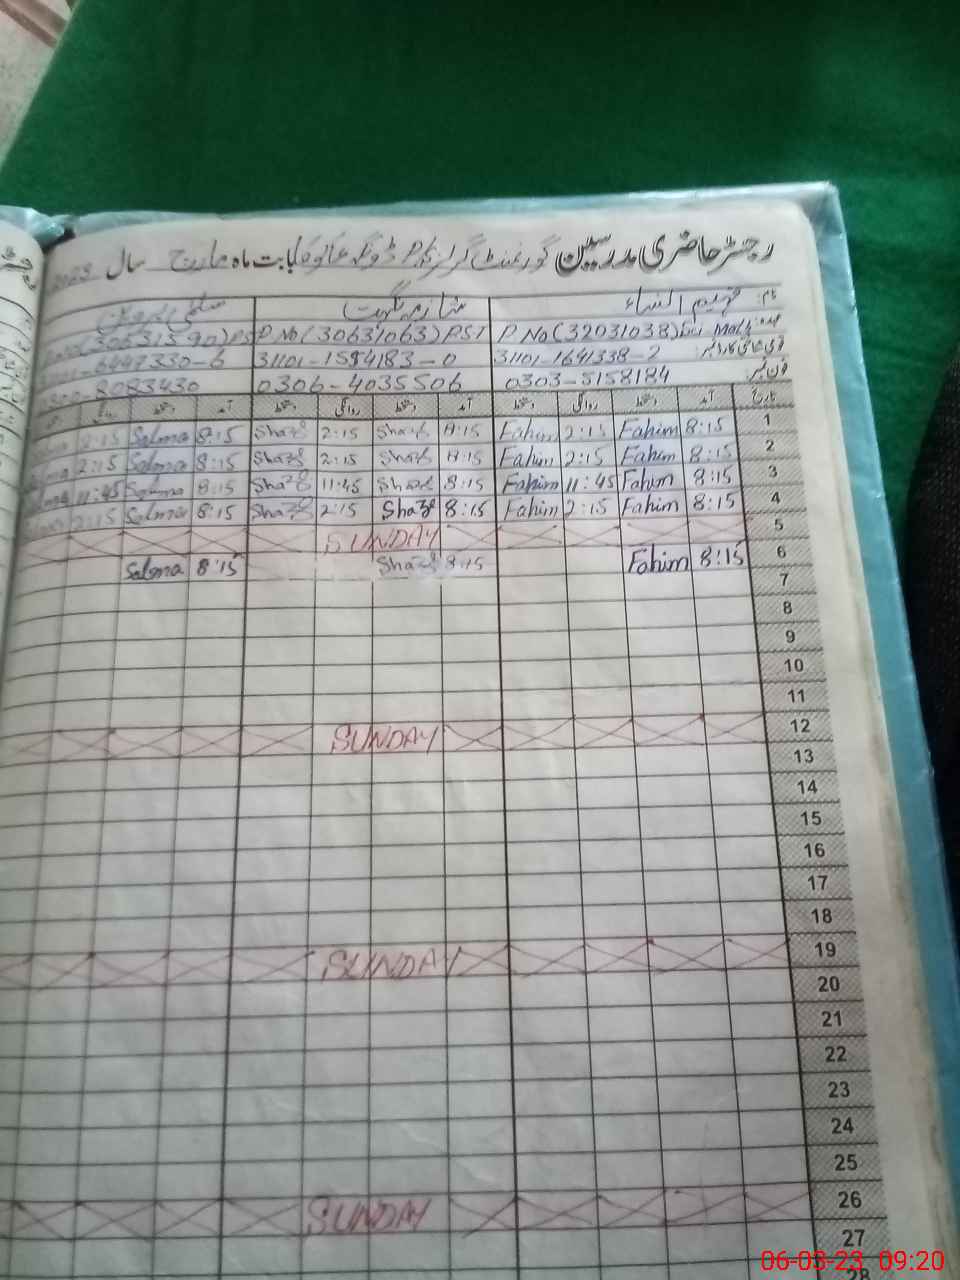 رجسٹر حاضری مدرسین گورنمنٹ گرلز بابت ماہ مارچ سال 2023
نام: فہیم النساء شازیہ نگہت سلمیٰ
عہدہ: P.No(32031038) P.No(30631063) PST (30631390) PST
قومی شناختی کارڈ نمبر: 31101-1641338-2 31101-1584183-0 6447330-6
فون نمبر: 0303-5158184 0306-4035506 8083430
تاریخ آمد دستخط روانگی دستخط آمد دستخط روانگی دستخط آمد دستخط روانگی
1 8:15 Fahim 2:15 Fahim 8:15 Shaz 2:15 Shaz 8:15 Salma 2:15
2 8:15 Fahim 2:15 Fahim 8:15 Shaz 2:15 Shaz 8:15 Salma 2:15
3 8:15 Fahim 11:45 Fahim 8:15 Shaz 11:45 Shaz 8:15 Salma 11:45
4 8:15 Fahim 2:15 Fahim 8:15 Shaz 2:15 Shaz 8:15 Salma 2:15
5 SUNDAY
6 8:15 Fahim 8:15 Shaz 8:15 Salma
7
8
9
10
11
12 SUNDAY
13
14
15
16
17
18
19 SUNDAY
20
21
22
23
24
25
26 SUNDAY
27
28
06-03-23 09:20